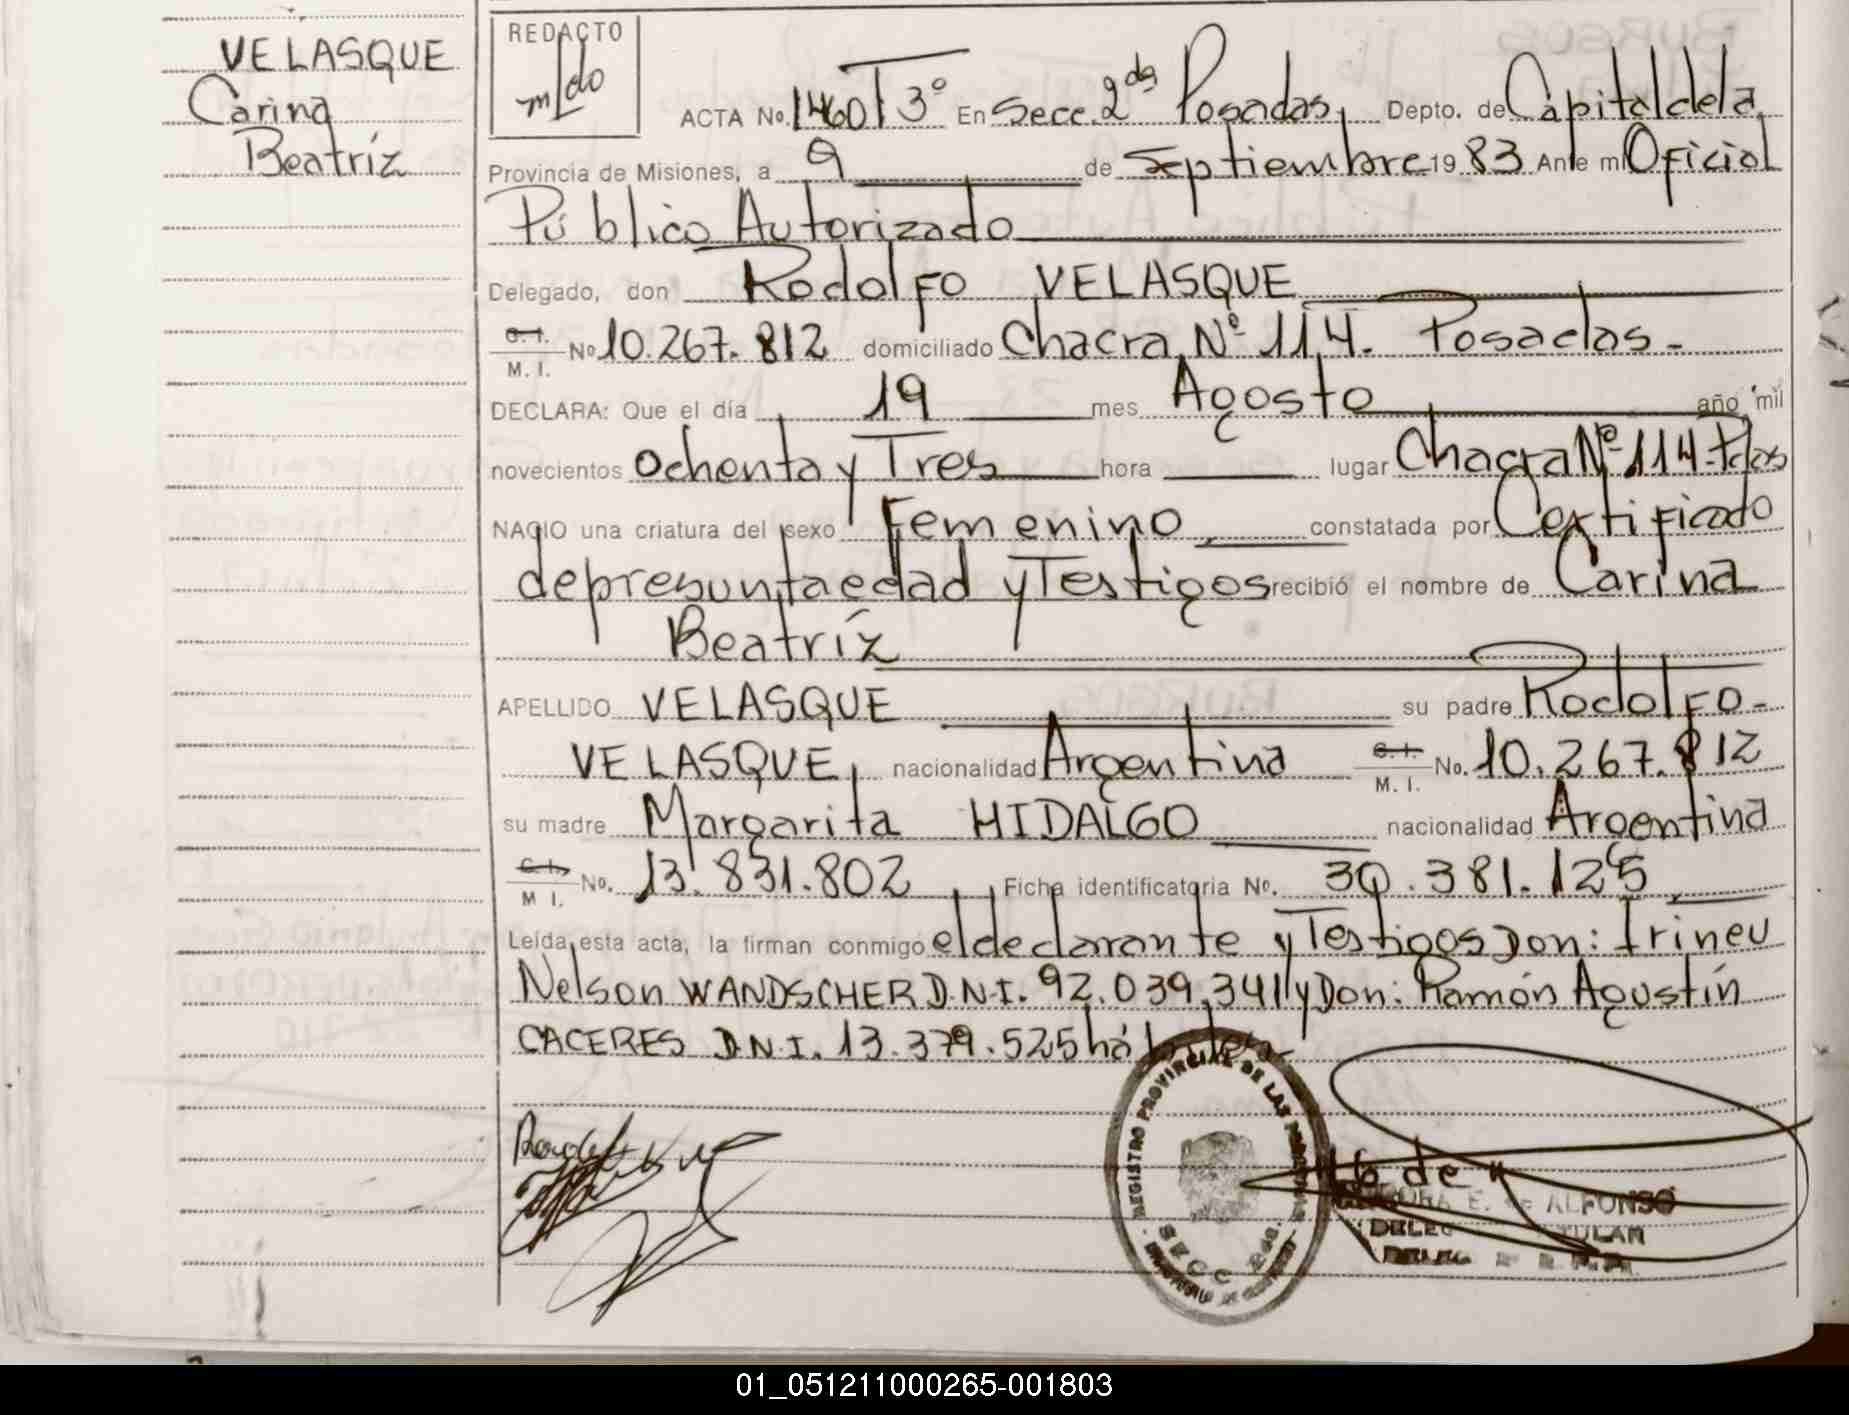 VELASQUE
Carina
Beatríz
REDACTO
ACTA No. 1460 T 3º En Secc. 2da Posadas, Depto. de Capital de la
Provincia de Misiones, a 9 de Septiembre 1983 Ante mi Oficial
Público Autorizado
Delegado, don Rodolfo VELASQUE
C. I.
M. I. No 10.267.812 domiciliado Chacra Nº 114. Posadas.-
DECLARA: Que el día 19 mes Agosto año mil
novecientos ochenta y Tres hora lugar Chacra Nº 114-Pdas
NACIO una criatura del sexo Femenino constatada por Certificado
de presunta edad y Testigos recibió el nombre de Carina
Beatríz
APELLIDO VELASQUE su padre Rodolfo-
VELASQUE, nacionalidad Argentina C. I.
M. I. No. 10.267.812
su madre Margarita HIDALGO nacionalidad Argentina
C. I.
M I. No. 13.831.802, Ficha identificatoria No. 30.381.125
Leída esta acta, la firman conmigo el declarante y Testigos Don: Irineu
Nelson WANDSCHER D.N.I. 92.039.341 y Don: Ramón Agustín
CACERES D.N.I. 13.379.525 hábiles
REGISTRO PROVINCIAL DE LAS PERSONAS
SECC 2da.
E. de ALFONSO
01_051211000265-001803